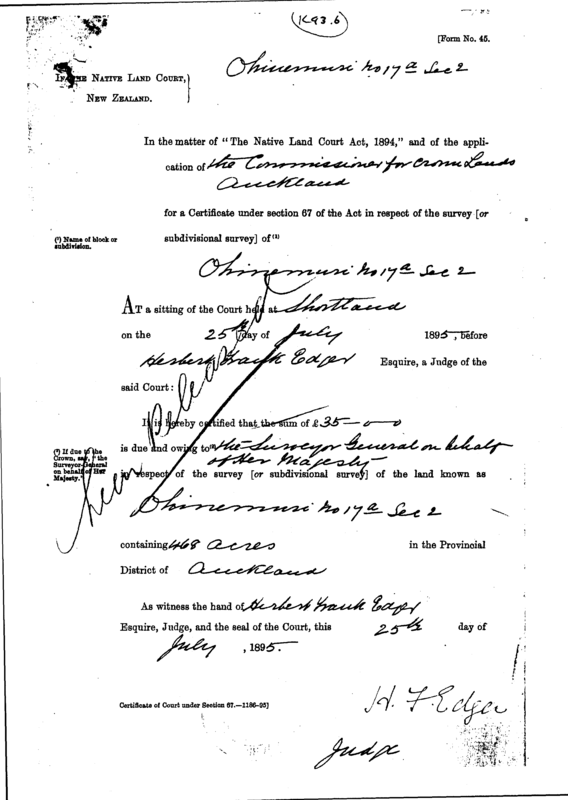 K93.6
[Form No. 45.
Ohinemuri No 17a Sec 2
IN THE NATIVE LAND COURT,
NEW ZEALAND.
In the matter of "The Native Land Court Act, 1894," and of the appli-
cation of the Commissioner for Crown Lands
Auckland
for a Certificate under section 67 of the Act in respect of the survey [or
subdivisional survey] of (1)
(1) Name of block or
subdivision.
Ohinemuri No 17a Sec 2
AT a sitting of the Court held at Shortland
on the 25th day of July 1895, before
Herbert Frank Edger Esquire, a Judge of the
said Court:
It is hereby certified that the sum of £35–0–0
is due and owing to the Surveyor General on behalf
of Her Majesty
(2) If due to the
Crown, say, "the
Surveyor-General
on behalf of Her
Majesty."
in respect of the survey [or subdivisional survey] of the land known as
Ohinemuri No 17a Sec 2
Lien Released
containing 468 acres in the Provincial
District of Auckland
As witness the hand of Herbert Frank Edger
Esquire, Judge, and the seal of the Court, this 25th day of
July, 1895.
Certificate of Court under Section 67.—1186-95]
H. F. Edger
Judge